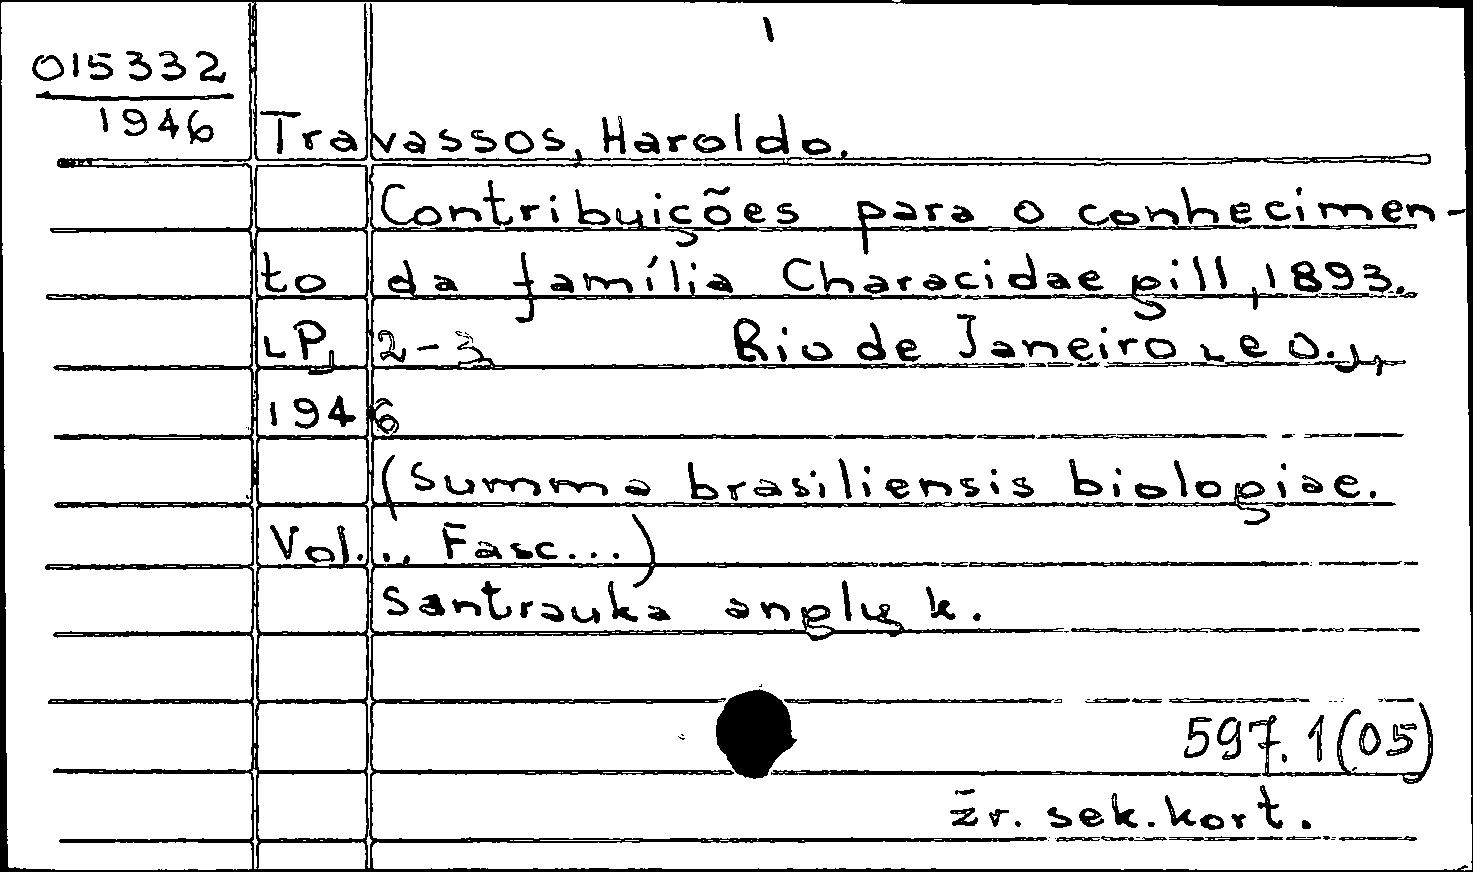 1
015332
1946
Travassos, Haroldo.
Contribuições para o conhecimen-
to da família Characidae gill, 1893.
[P] 2-3 Rio de Janeiro [e o.],
1946
(Summa brasiliensis biologiae.
Vol... Fasc...)
Santrauka anglų k.
597.1(05)
žr. sek. kort.